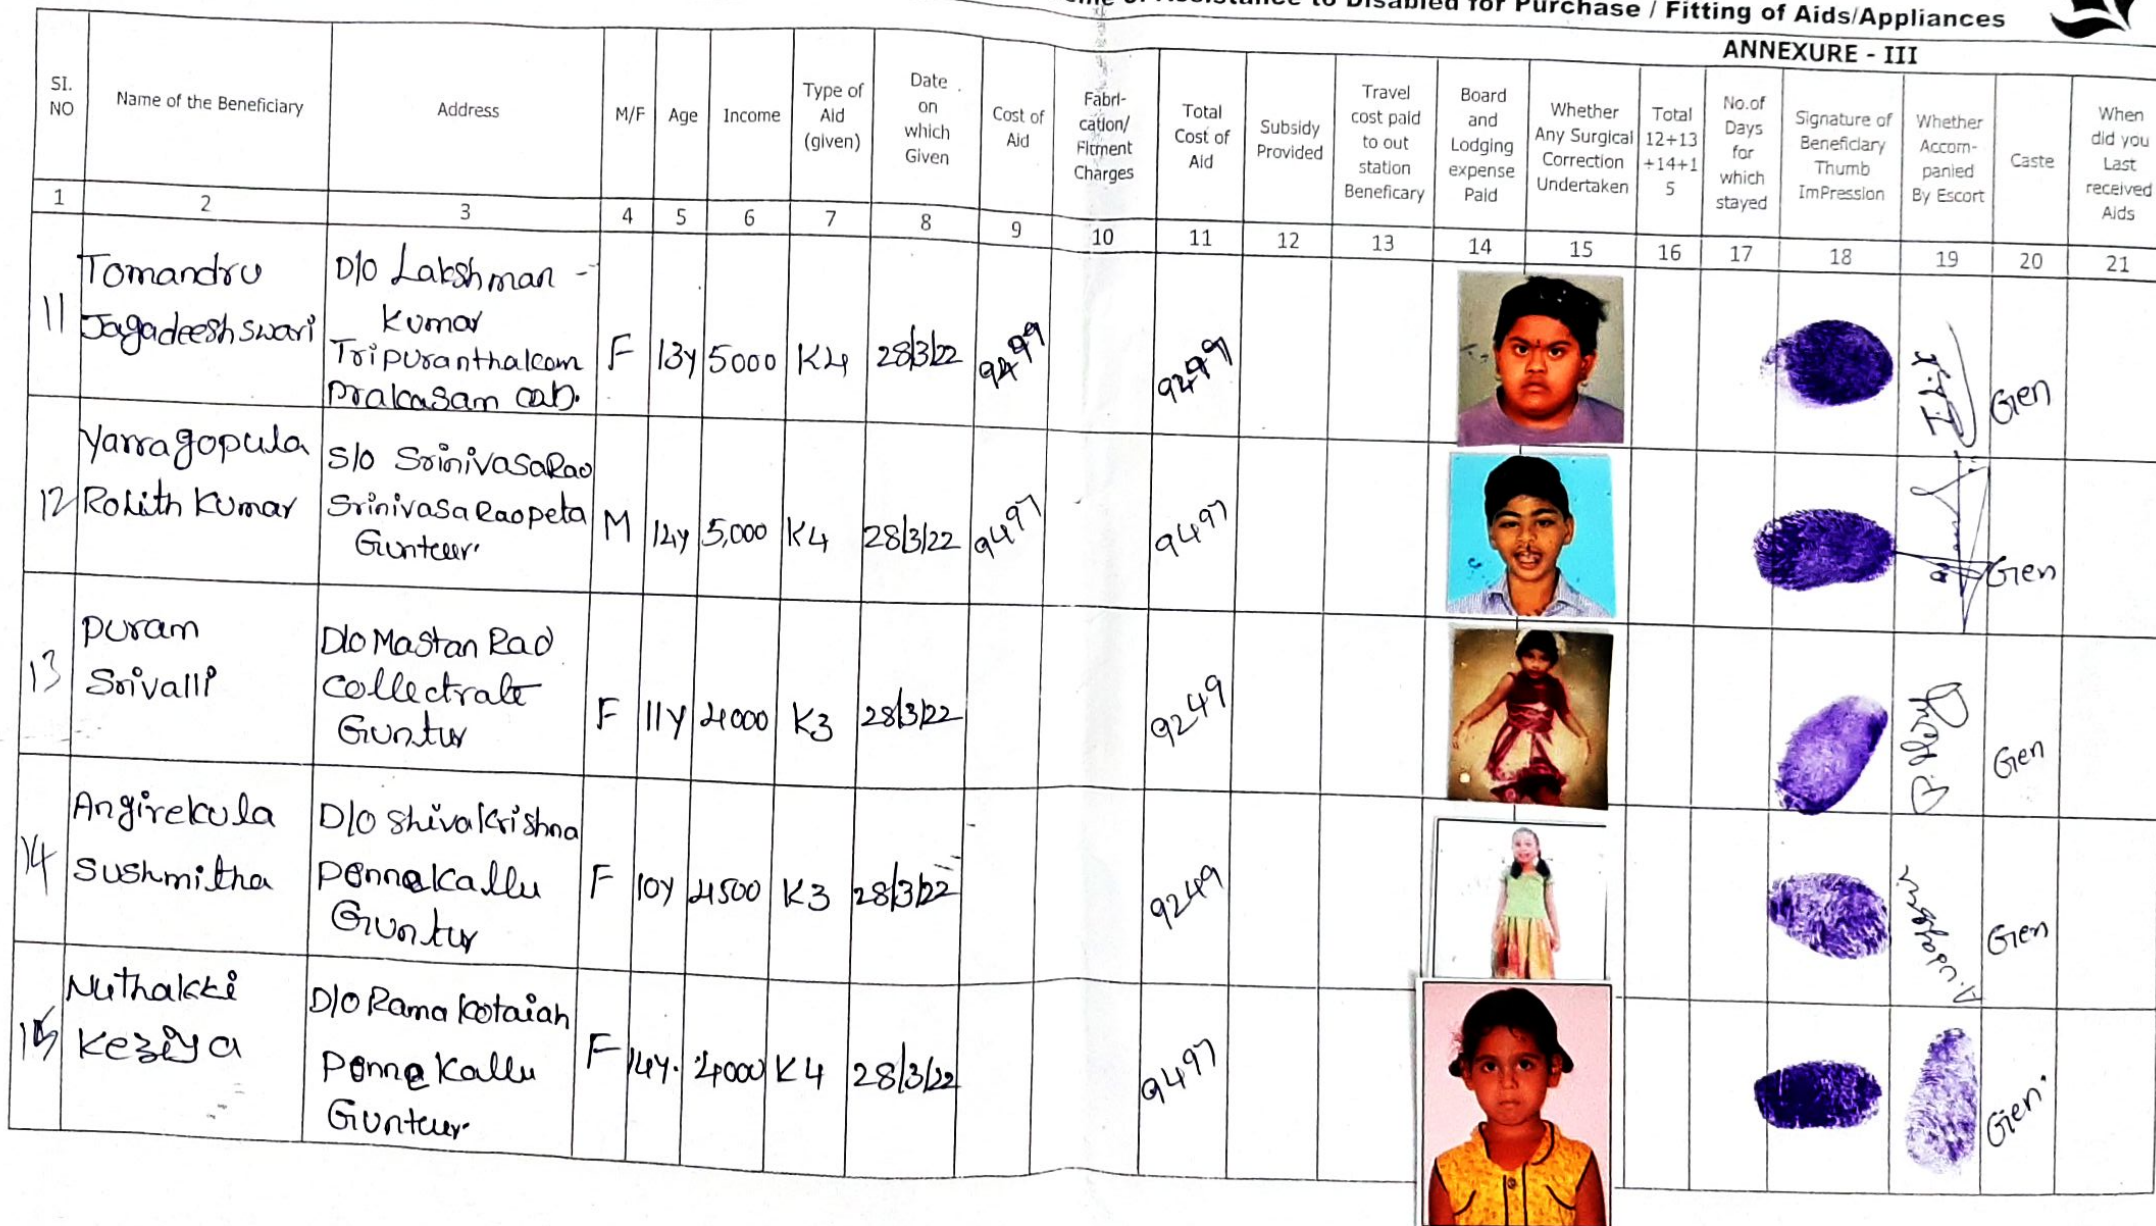 to Disabled for Purchase / Fitting of Aids/Appliances
ANNEXURE - III
SI. NO
Name of the Beneficiary
Address
M/F
Age
Income
Type of Aid (given)
Date on which Given
Cost of Aid
Fabri-cation/ Fitment Charges
Total Cost of Aid
Subsidy Provided
Travel cost paid to out station Beneficary
Board and Lodging expense Paid
Whether Any Surgical Correction Undertaken
Total 12+13 +14+1 5
No.of Days for which stayed
Signature of Beneficiary Thumb ImPression
Whether Accom-panied By Escort
Caste
When did you Last received Aids
1 2 3 4 5 6 7 8 9 10 11 12 13 14 15 16 17 18 19 20 21
11 Tomandru Jagadeeshswari
D/o Lakshman - Kumar Tripuranthalcom Prakasam
F 13y 5000 K4 28/3/22 9499 9499 Gen
12 Yarragopula Rohith Kumar
S/o SrinivasaRao Srinivasa Raopeta Guntur
M 14y 5,000 K4 28/3/22 9497 9497 Gen
13 Puram Srivalli
D/o Mastan Rao Collectrate Guntur
F 11y 4000 K3 28/3/22 9249 Gen
14 Angirekula Sushmitha
D/o Shivakrishna Pennekallu Guntur
F 10y 4500 K3 28/3/22 9249 Gen
15 Nuthakki Keziya
D/o Rama Kotaiah Pennekallu Guntur
F 14y. 4000 K4 28/3/22 9497 Gen.